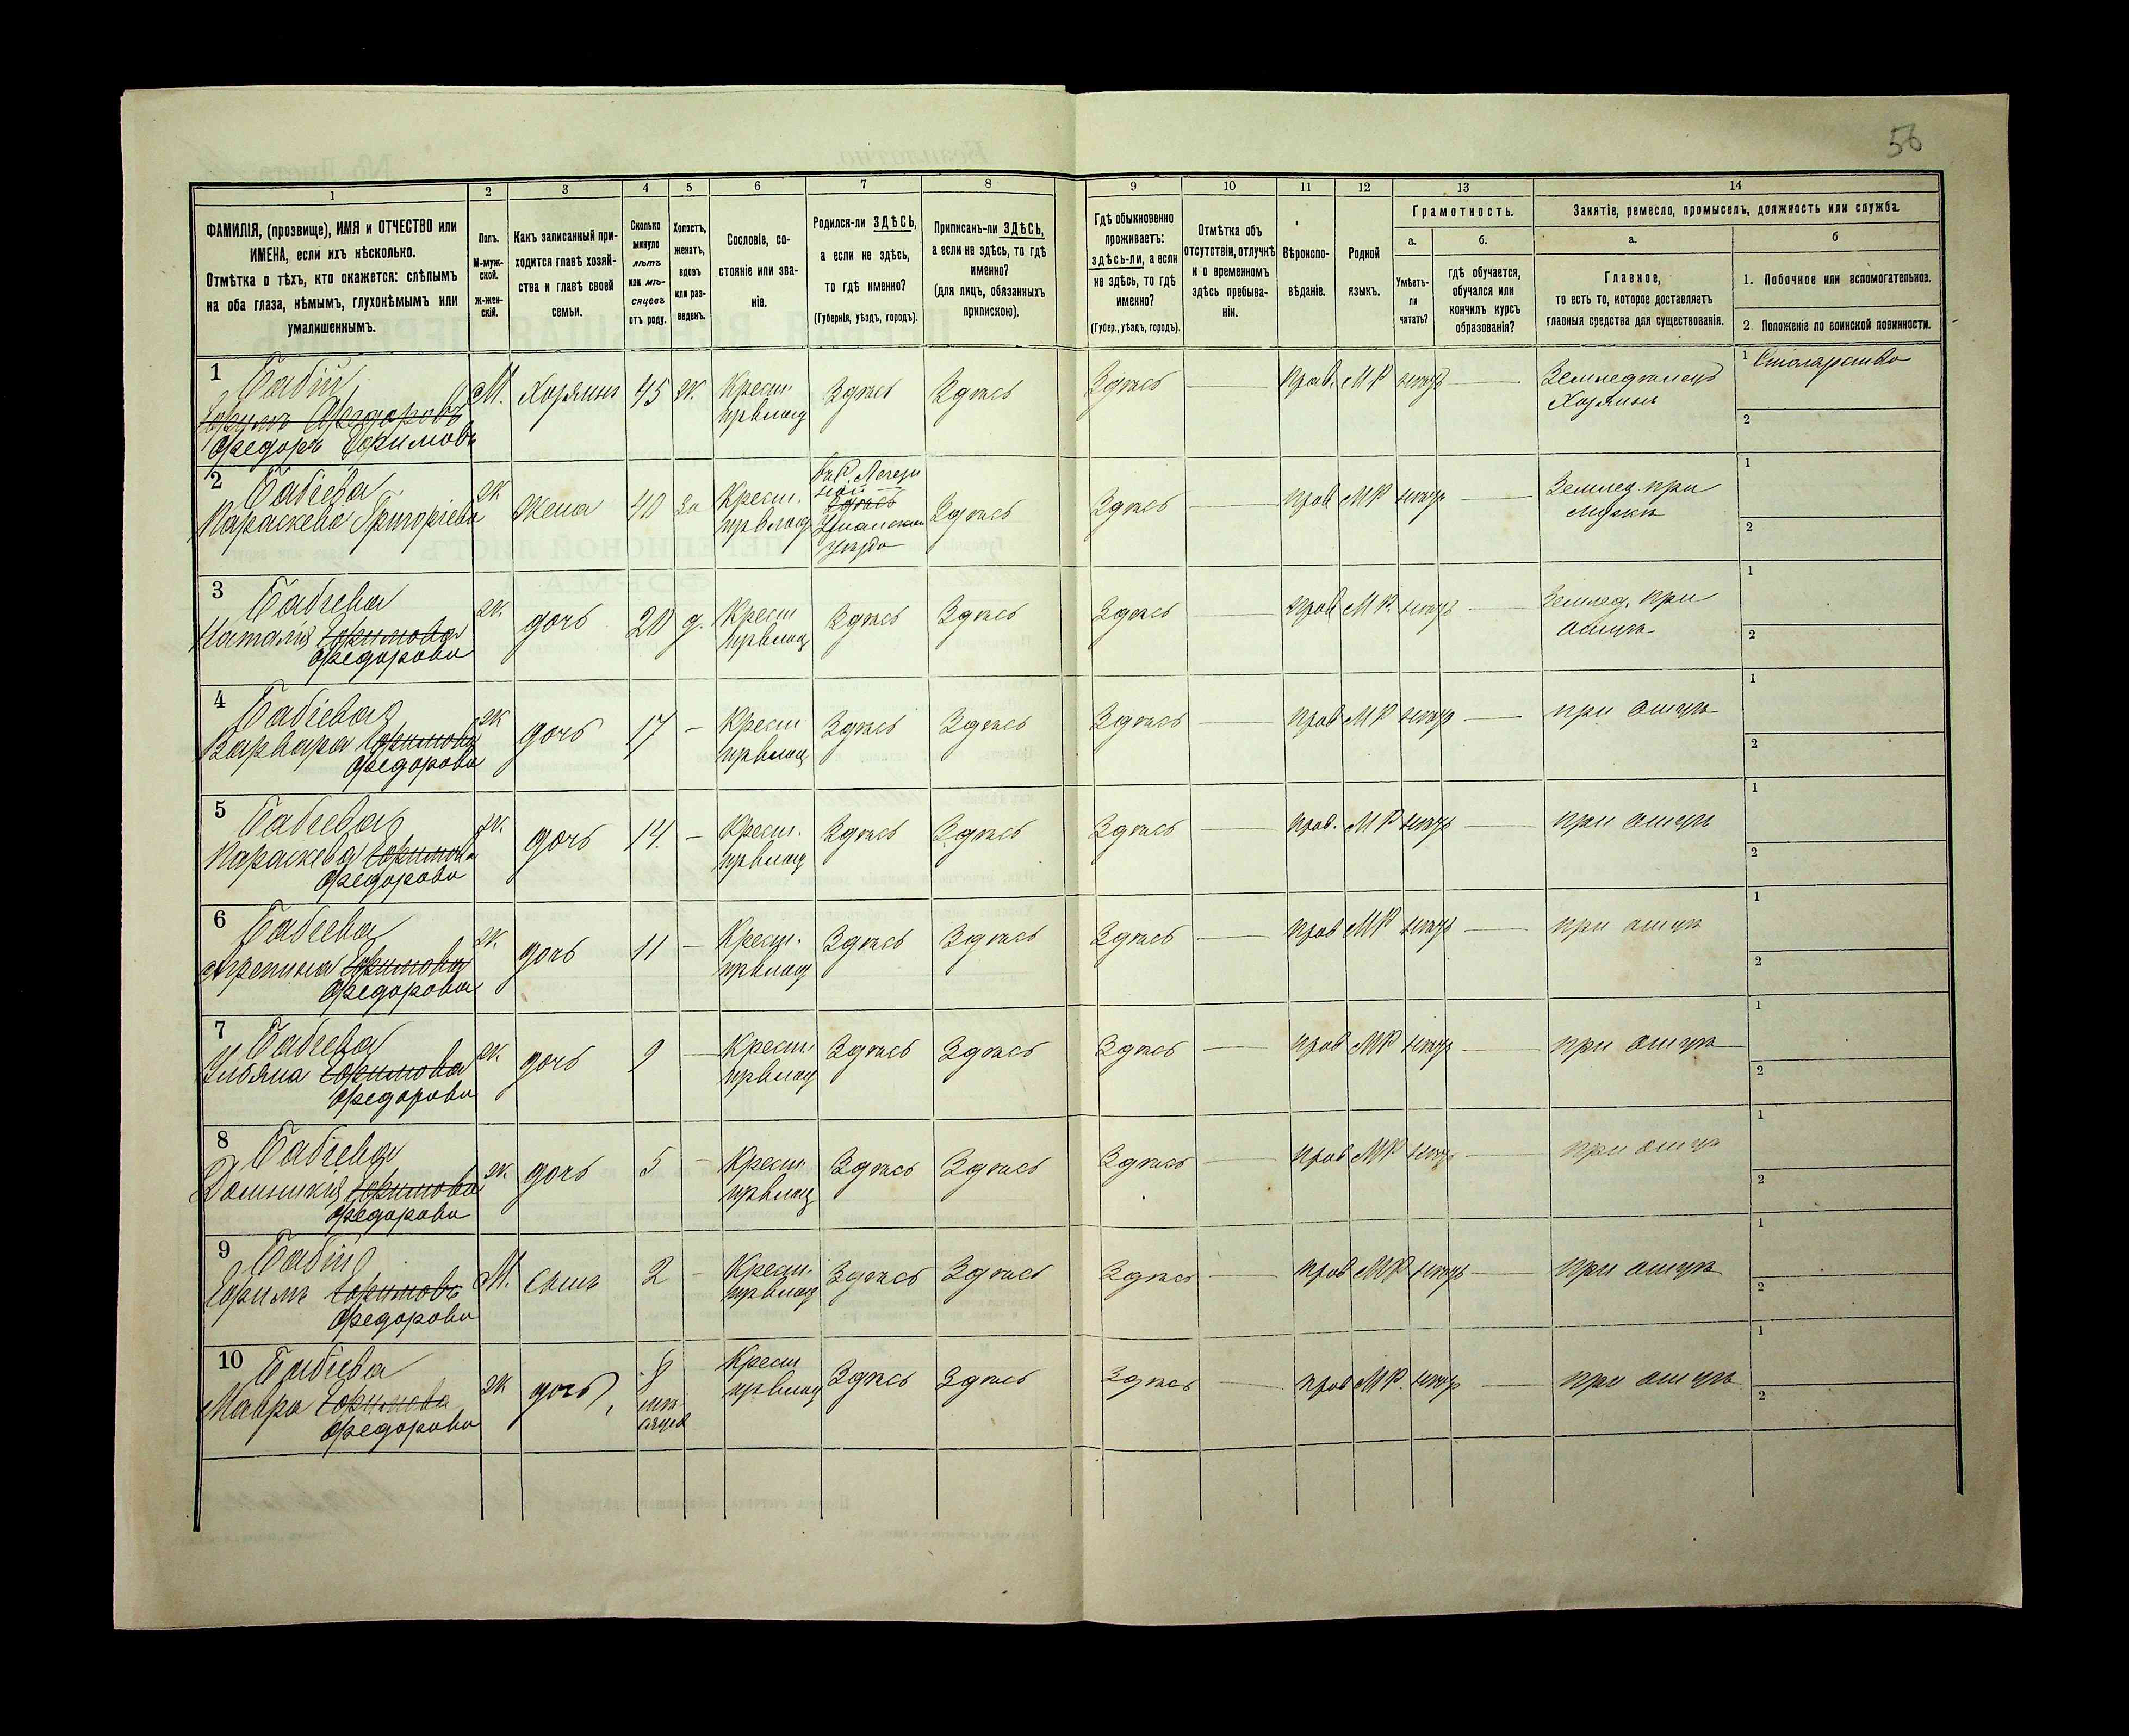 56
1 2 3 4 5 6 7 8 9 10 11 12 13 14
ФАМИЛІЯ, (прозвище), ИМЯ и ОТЧЕСТВО или
ИМЕНА, если ихъ нѣсколько.
Отмѣтка о тѣхъ, кто окажется: слѣпымъ
на оба глаза, нѣмымъ, глухонѣмымъ или
умалишеннымъ.
Полъ.
М-муж-
ской.
ж-жен-
скій.
Какъ записанный при-
ходится главѣ хозяй-
ства и главѣ своей
семьи.
Сколько
минуло
лѣтъ
или мѣ-
сяцевъ
отъ роду.
Холостъ,
женатъ,
вдовъ
или раз-
веденъ.
Сословіе, со-
стояніе или зва-
ніе.
Родился-ли ЗДѢСЬ,
а если не здѣсь,
то гдѣ именно?
(Губернія, уѣздъ, городъ).
Приписанъ-ли ЗДѢСЬ,
а если не здѣсь, то гдѣ
именно?
(для лицъ, обязанныхъ
припискою).
Гдѣ обыкновенно
проживаетъ:
здѣсь-ли, а если
не здѣсь, то гдѣ
именно?
(Губер., уѣздъ, городъ).
Отмѣтка объ
отсутствіи, отлучкѣ
и о временномъ
здѣсь пребыва-
ніи.
Вѣроиспо-
вѣданіе.
Родной
языкъ.
Грамотность.
а.
Умѣетъ-
ли
читать?
б.
гдѣ обучается,
обучался или
кончилъ курсъ
образованія?
Занятіе, ремесло, промыселъ, должность или служба.
а.
Главное,
то есть то, которое доставляетъ
главныя средства для существованія.
б
1. Побочное или вспомогательное.
2. Положеніе по воинской повинности.
1 Бабій
Ефимъ Федоровъ
Федоръ Ефимовъ
М. Хозяинъ 45 ж. Крест. Здѣсь Здѣсь Здѣсь — прав. МР нѣтъ — Земледѣлецъ
Хозяинъ
1 Столярство
2
2 Бабіева
Параскева Григорьева
ж. жена 40 за Крест.
Здѣсь
Уманскаго
уѣзда
Здѣсь Здѣсь — прав МР нѣтъ — Землед. при
мужѣ
1
2
3 Бабіева
Наталія Ефимова
Федорова
ж. дочь 20 д. Крест Здѣсь Здѣсь Здѣсь — прав МР. нѣтъ — Землед. при
отцѣ
1
2
4 Бабіева
Варвара Ефимова
Федорова
ж дочь 17 — Крест Здѣсь Здѣсь Здѣсь — прав МР нѣтъ — при отцѣ
1
2
5 Бабіева
Параскева Ефимова
Федорова
ж. дочь 14. — Крест. Здѣсь Здѣсь Здѣсь — прав. МР нѣтъ — при отцѣ
1
2
6 Бабіева
Агрепина Ефимова
Федорова
ж. дочь 11 — Крест. Здѣсь Здѣсь Здѣсь — прав МР нѣтъ — при отцѣ
1
2
7 Бабіева
Ульяна Ефимова
Федорова
ж. дочь 9 — Крест Здѣсь Здѣсь Здѣсь — прав МР нѣтъ — при отцѣ
1
2
8 Бабіева
Домникія Ефимова
Федорова
ж дочь 5 — Крест Здѣсь Здѣсь Здѣсь — прав МР нѣтъ — при отцѣ
1
2
9 Бабій
Ефимъ Ефимовъ
Федорова
М. сынъ 2 — Крест. Здѣсь Здѣсь Здѣсь — прав МР нѣтъ — при отцѣ
1
2
10 Бабіева
Мавра Ефимова
Федорова
ж дочь 8
мѣ
сяцев
Крест Здѣсь Здѣсь Здѣсь — прав МР. нѣтъ — при отцѣ
1
2